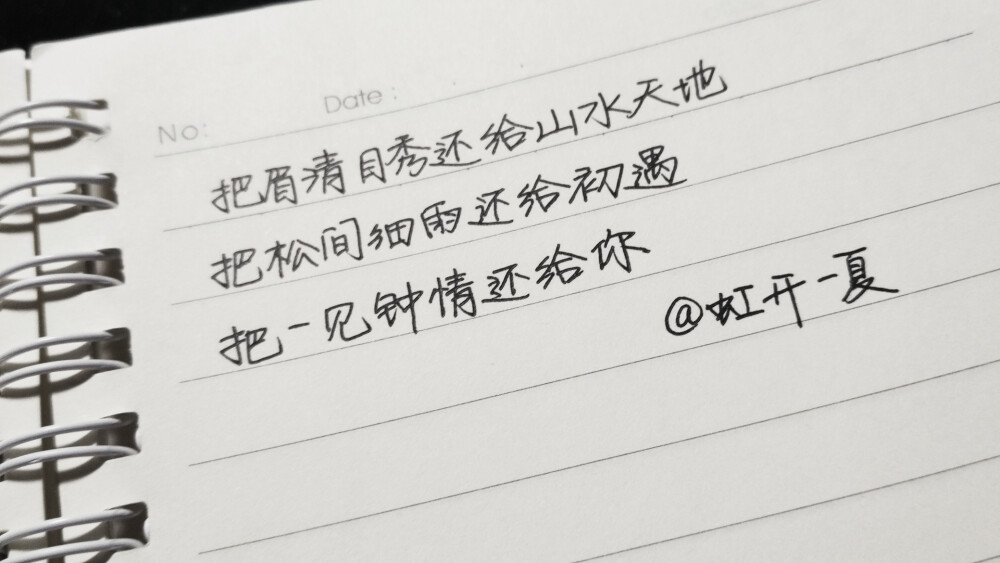 No:
Date:
把眉清目秀还给山水天地
把松间细雨还给初遇
把一见钟情还给你
@虹开一夏